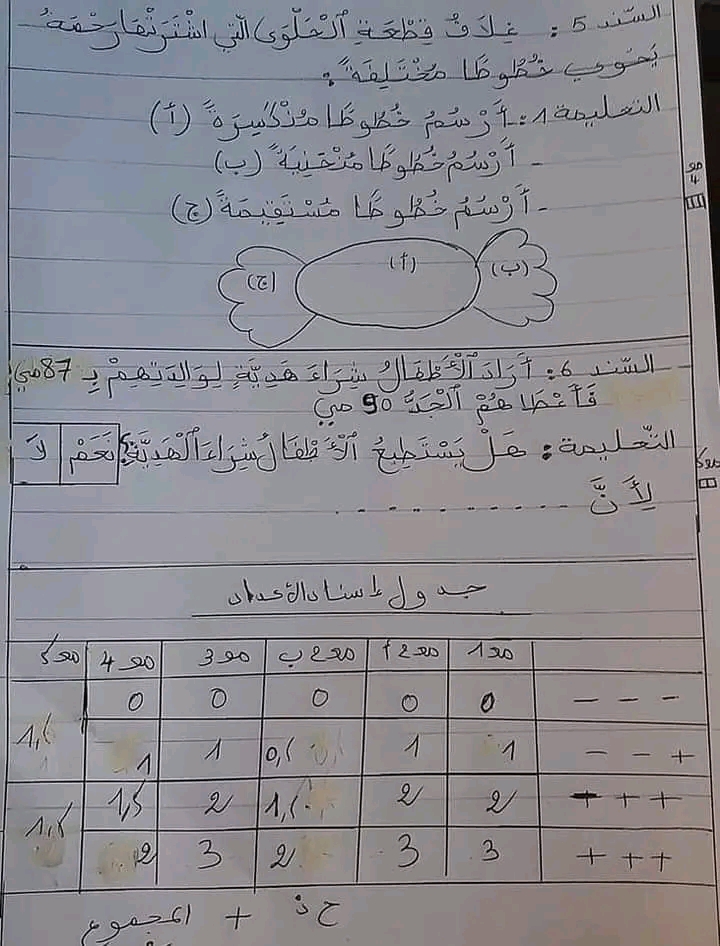 السّند 5 : غِلَافُ قِطْعَةِ ٱلْحَلْوَى الَّتِي اشْتَرَتْهَا رَحْمَةُ
يَحْوِي خُطُوطًا مُخْتَلِفَةً :
التعليمة 1 : أَرْسُمُ خُطُوطًا مُنْكَسِرَةً (أ)
- أَرْسُمُ خُطُوطًا مُنْحَنِيَةً (ب)
- أَرْسُمُ خُطُوطًا مُسْتَقِيمَةً (ج)
مع 4
(ج) (أ) (ب)
السّند 6 : أَرَادَ ٱلْأَطْفَالُ شِرَاءَ هَدِيَّةٍ لِوَالِدَتِهِمْ بِـ 87 مي
فَأَعْطَاهُمْ ٱلْجَدُّ 90 مي
التّعليمة : هَلْ يَسْتَطِيعُ ٱلْأَطْفَالُ شِرَاءَ ٱلْهَدِيَّةِ؟ نَعَمْ لَا
مع5
لِأَنَّ ..........
جدول إسناد الأعداد
مع1 مع2أ مع2ب مع3 مع4 مع5
- - - 0 0 0 0 0
- - + 1 1 0,5 1 1 1,5
+ + + 2 2 1,5 2 1,5
+ + + 3 3 2 3 2 1,5
المجموع +